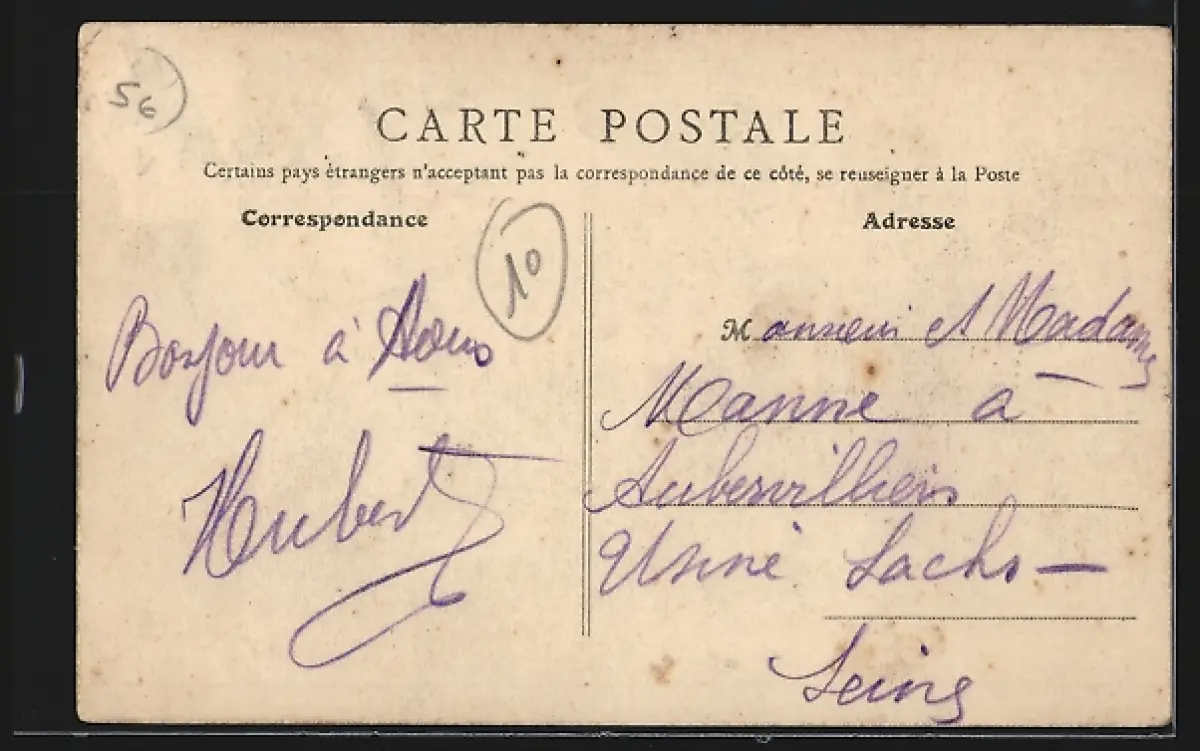 56
CARTE POSTALE
Certains pays étrangers n'acceptant pas la correspondance de ce côté, se renseigner à la Poste
Correspondance
10
Bonjour à tous
Hubert
Adresse
Monsieur et Madame
Manne a
Aubervilliers
Usine Sachs —
Seine